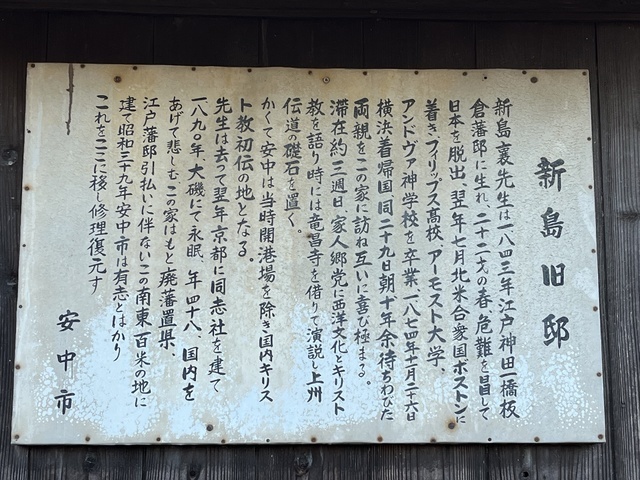 新島旧邸
新島襄先生は一八四三年江戸神田一橋板
倉藩邸に生れ、二十二才の春、危難を冒して
日本を脱出、翌年七月北米合衆国ボストンに
着き、フィリップス高校、アーモスト大学、
アンドヴァ神学校を卒業、一八七四年十一月二十六日
横浜着帰国、同二十九日朝、十年余待ちわびた
両親をこの家に訪ね互いに喜び極まる。
滞在約三週日、家人郷党に西洋文化とキリスト
教を語り時には竜昌寺を借りて演説し上州
伝道の礎石を置く。
かくて安中は当時開港場を除き国内キリス
ト教初伝の地となる。
先生は去って翌年京都に同志社を建て
一八九〇年、大磯にて永眠、年四十八、国内を
あげて悲しむ。この家はもと廃藩置県、
江戸藩邸引払いに伴ないこの南東百米の地に
建て昭和三十九年安中市は有志とはかり
これをここに移し修理復元す
安中市